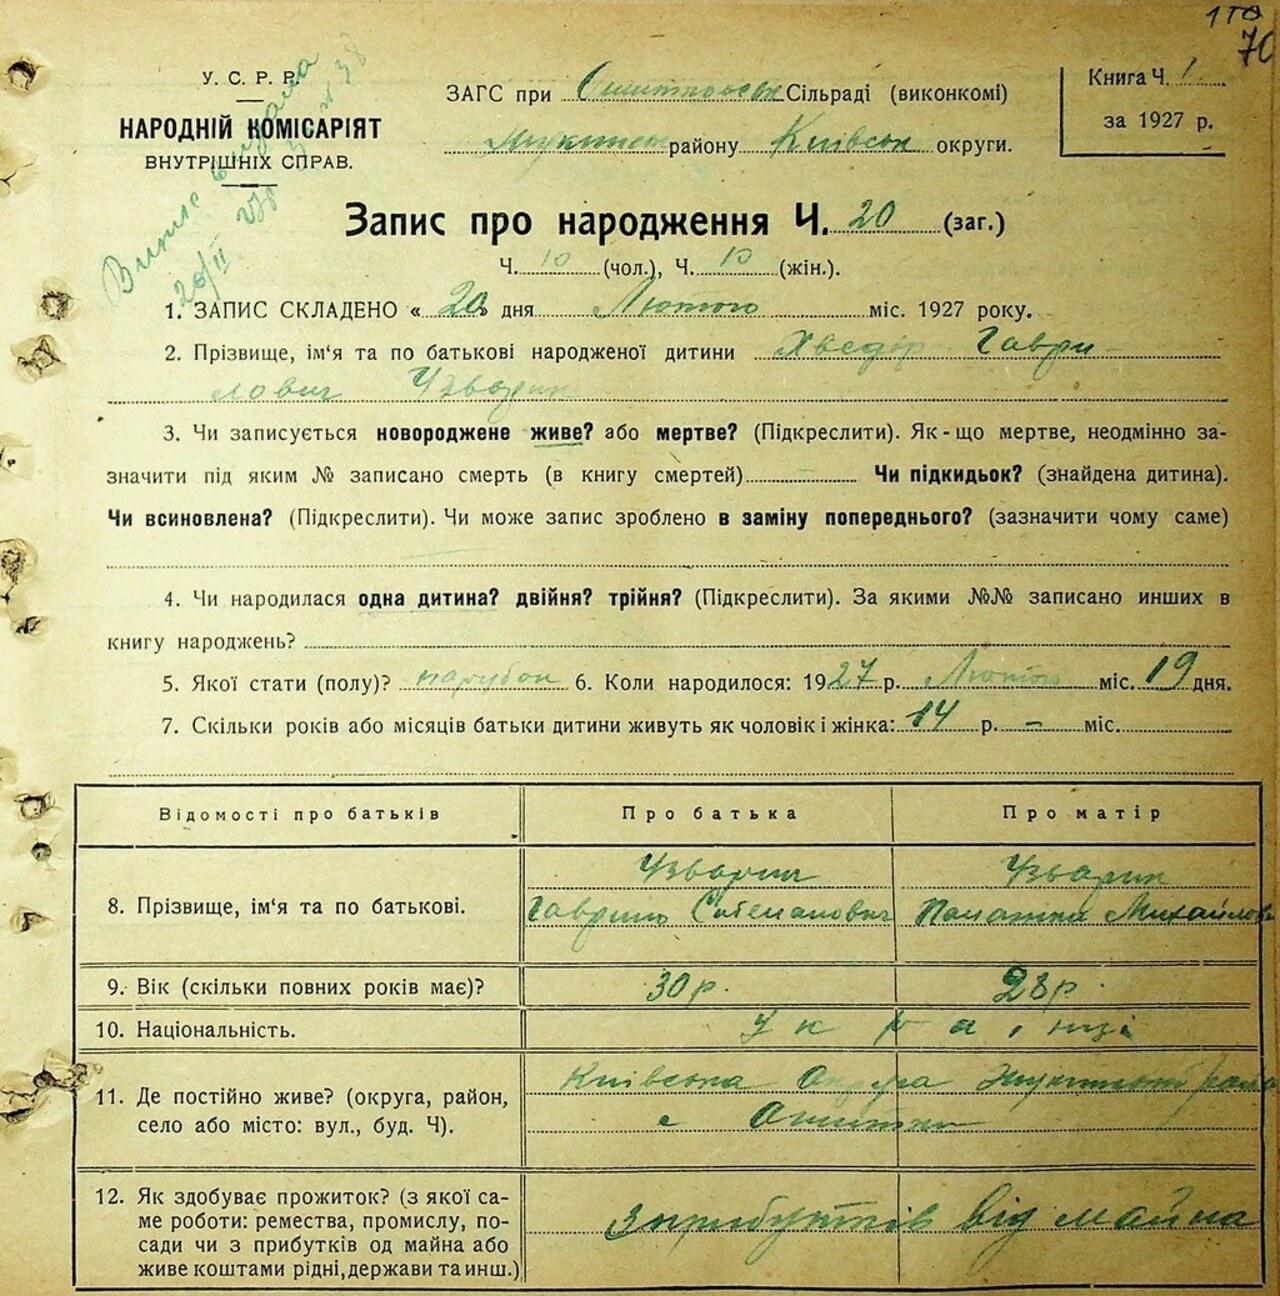 1 то
70
У. С. Р. Р.
НАРОДНІЙ КОМІСАРІЯТ
ВНУТРІШНІХ СПРАВ.
ЗАГС при Сільраді (виконкомі)
району Київськ округи.
Книга Ч. 1.
за 1927 р.
Запис про народження Ч. 20 (заг.)
Ч. 10 (чол.), Ч. 10 (жін.).
1. ЗАПИС СКЛАДЕНО « 20 » дня Лютого міс. 1927 року.
2. Прізвище, ім'я та по батькові народженої дитини Хведір Гаври-
лович Узварик
3. Чи записується новороджене живе? або мертве? (Підкреслити). Як-що мертве, неодмінно за-
значити під яким № записано смерть (в книгу смертей) Чи підкидьок? (знайдена дитина).
Чи всиновлена? (Підкреслити). Чи може запис зроблено в заміну попереднього? (зазначити чому саме)
4. Чи народилася одна дитина? двійня? трійня? (Підкреслити). За якими №№ записано инших в
книгу народжень?
5. Якої стати (полу)? парубок 6. Коли народилося: 1927 р. Лютого міс. 19 дня.
7. Скільки років або місяців батьки дитини живуть як чоловік і жінка: 14 р. - міс.
Відомості про батьків Про батька Про матір
Узварик Узварик
8. Прізвище, ім'я та по батькові. Гаврило Степанович Михайлов
9. Вік (скільки повних років має)? 30 р. 28 р.
10. Національність. Українці
Київська Округа
11. Де постійно живе? (округа, район,
село або місто: вул., буд. Ч). с
12. Як здобуває прожиток? (з якої са-
ме роботи: ремества, промислу, по- З прибутків від майна
сади чи з прибутків од майна або
живе коштами рідні, держави та инш.)